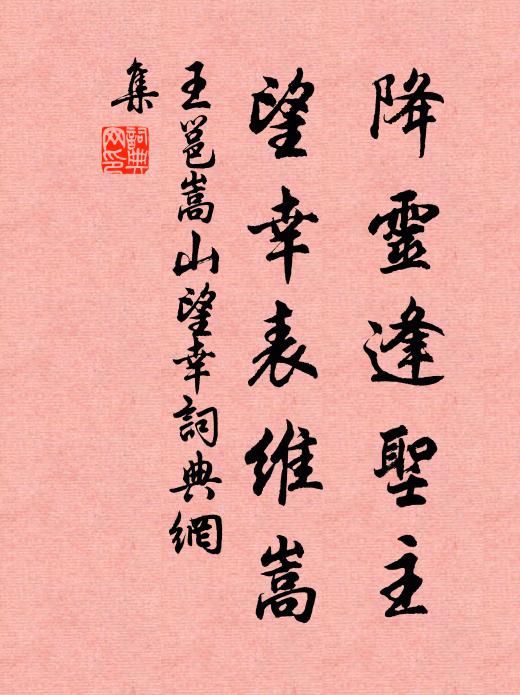 降靈逢聖主
望幸表維嵩
王邕嵩山望幸詞典網
集
詞典
網印